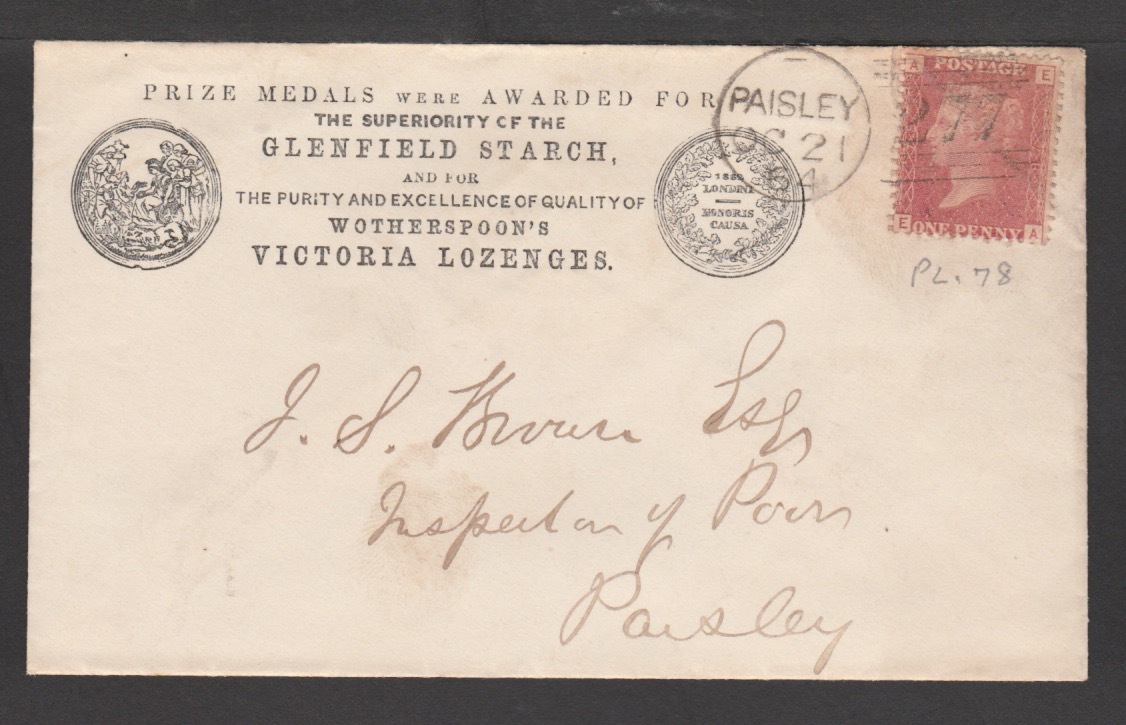 PRIZE MEDALS WERE AWARDED FOR
THE SUPERIORITY OF THE
GLENFIELD STARCH,
AND FOR
THE PURITY AND EXCELLENCE OF QUALITY OF
WOTHERSPOON'S
VICTORIA LOZENGES.
1862
LONDINI
HONORIS
CAUSA
PAISLEY
OC 21
64
277
A POSTAGE E
E ONE PENNY A
PL. 78
J. S. Brown Esqr
Inspector of Poor.
Paisley